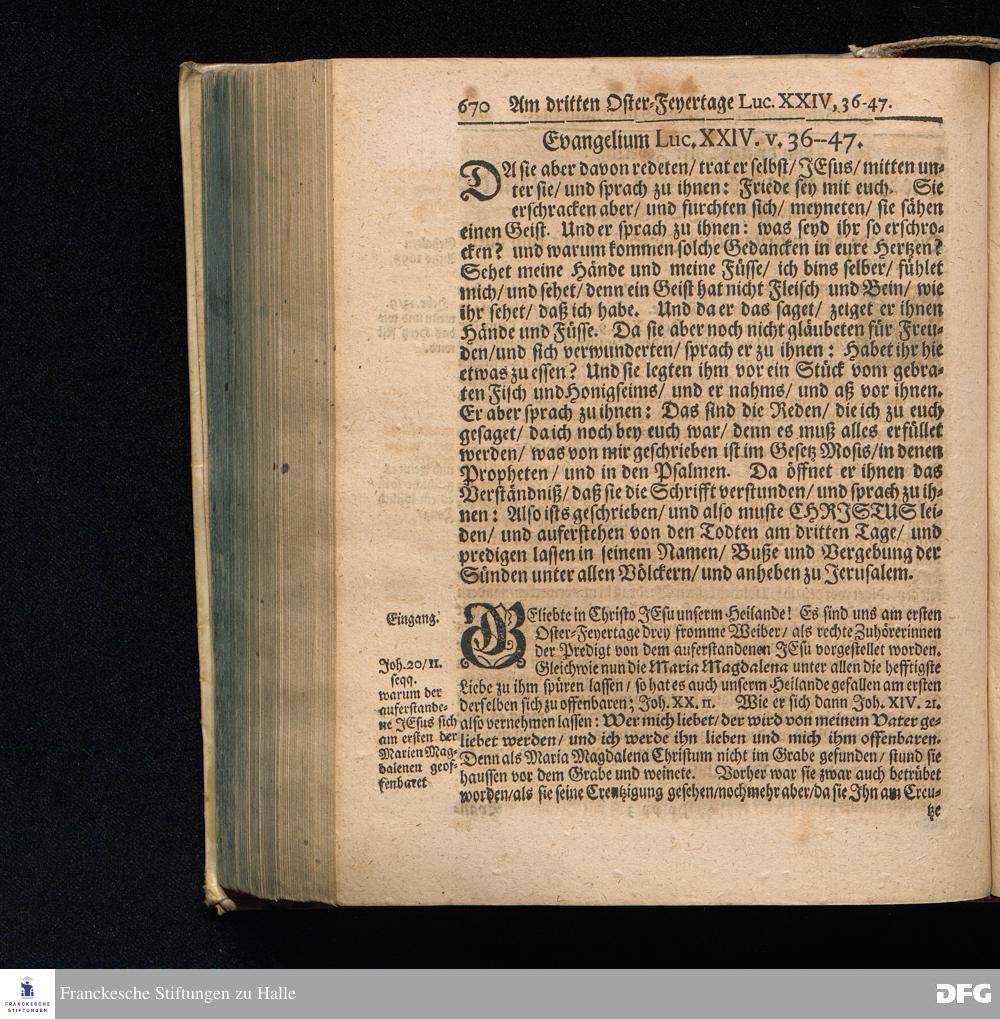 670 Am dritten Oster-Feyertage Luc. XXIV, 36-47.
Evangelium Luc. XXIV. v. 36--47.
DA sie aber davon redeten/ trat er selbst/ JEsus/ mitten un-
ter sie/ und sprach zu ihnen: Friede sey mit euch. Sie
erschracken aber/ und furchten sich/ meyneten/ sie sähen
einen Geist. Und er sprach zu ihnen: was seyd ihr so erschro-
cken? und warum kommen solche Gedancken in eure Hertzen?
Sehet meine Hände und meine Füsse/ ich bins selber/ fühlet
mich/ und sehet/ denn ein Geist hat nicht Fleisch und Bein/ wie
ihr sehet/ daß ich habe. Und da er das saget/ zeiget er ihnen
Hände und Füsse. Da sie aber noch nicht gläubeten für Freu-
den/und sich verwunderten/ sprach er zu ihnen: Habet ihr hie
etwas zu essen? Und sie legten ihm vor ein Stück vom gebra-
ten Fisch und Honigseims/ und er nahms/ und aß vor ihnen.
Er aber sprach zu ihnen: Das sind die Reden/ die ich zu euch
gesaget/ da ich noch bey euch war/ denn es muß alles erfüllet
werden/ was von mir geschrieben ist im Gesetz Mosis/in denen
Propheten/ und in den Psalmen. Da öffnet er ihnen das
Verständniß/ daß sie die Schrifft verstunden/ und sprach zu ih-
nen: Also ists geschrieben/ und also muste CHRISTUS lei-
den/ und auferstehen von den Todten am dritten Tage/ und
predigen lassen in seinem Namen/ Buße und Vergebung der
Sünden unter allen Völckern/ und anheben zu Jerusalem.
Eingang.
GEliebte in Christo JEsu unserm Heilande! Es sind uns am ersten
Oster-Feyertage drey fromme Weiber/ als rechte Zuhörerinnen
der Predigt von dem auferstandenen JEsu vorgestellet worden.
Gleichwie nun die Maria Magdalena unter allen die hefftigste
Liebe zu ihm spüren lassen/ so hat es auch unserm Heilande gefallen am ersten
derselben sich zu offenbaren; Joh. XX. 11. Wie er sich dann Joh. XIV. 21.
also vernehmen lassen: Wer mich liebet/ der wird von meinem Vater ge-
liebet werden/ und ich werde ihn lieben und mich ihm offenbaren.
Denn als Maria Magdalena Christum nicht im Grabe gefunden/ stund sie
haussen vor dem Grabe und weinete. Vorher war sie zwar auch betrübet
worden/als sie seine Creutzigung gesehen/noch mehr aber/da sie Ihn am Creu-
tze
Joh. 20/ 11.
seqq.
warum der
auferstande-
ne JEsus sich
am ersten der
Marien Mag-
dalenen geof-
fenbaret
FRANCKESCHE
STIFTUNGEN
Franckesche Stiftungen zu Halle
DFG